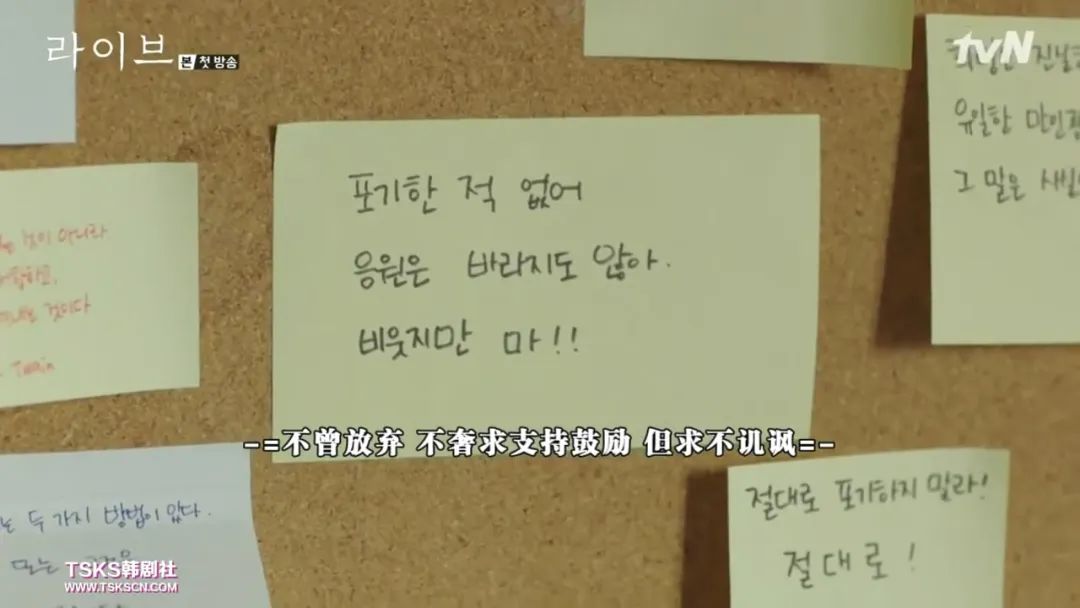 라이브 본 첫 방송
tvN
유일한
그 말은
포기한 적 없어
응원은 바라지도 않아.
비웃지만 마!!
것이 아니라
것이다
Twain
-=不曾放弃 不奢求支持鼓励 但求不讥讽=-
두 가지 방법이 있다.
절대로 포기하지 말라!
절대로!
TSKS韩剧社
WWW.TSKSCN.COM